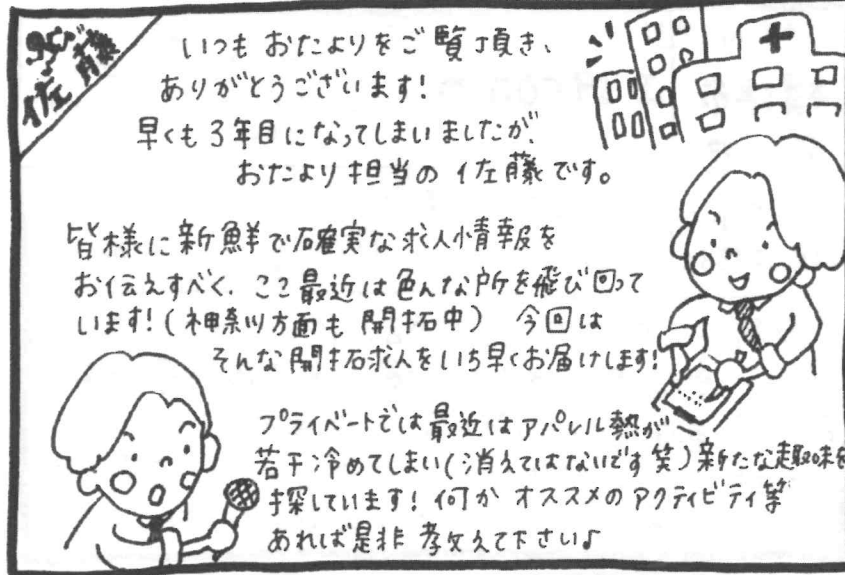 佐藤
いつも おたよりをご覧頂き、
ありがとうございます!
早くも3年目になってしまいましたが、
おたより担当の佐藤です。
皆様に新鮮で確実な求人情報を
お伝えすべく、ここ最近は色んな所を飛び回って
います!(神奈川方面も開拓中) 今回は
そんな開拓求人をいち早くお届けします!
プライベートでは最近はアパレル熱が
若干冷めてしまい(消えてはないです笑)新たな趣味を
探しています! 何かオススメのアクティビティ等
あれば是非教えて下さい♪